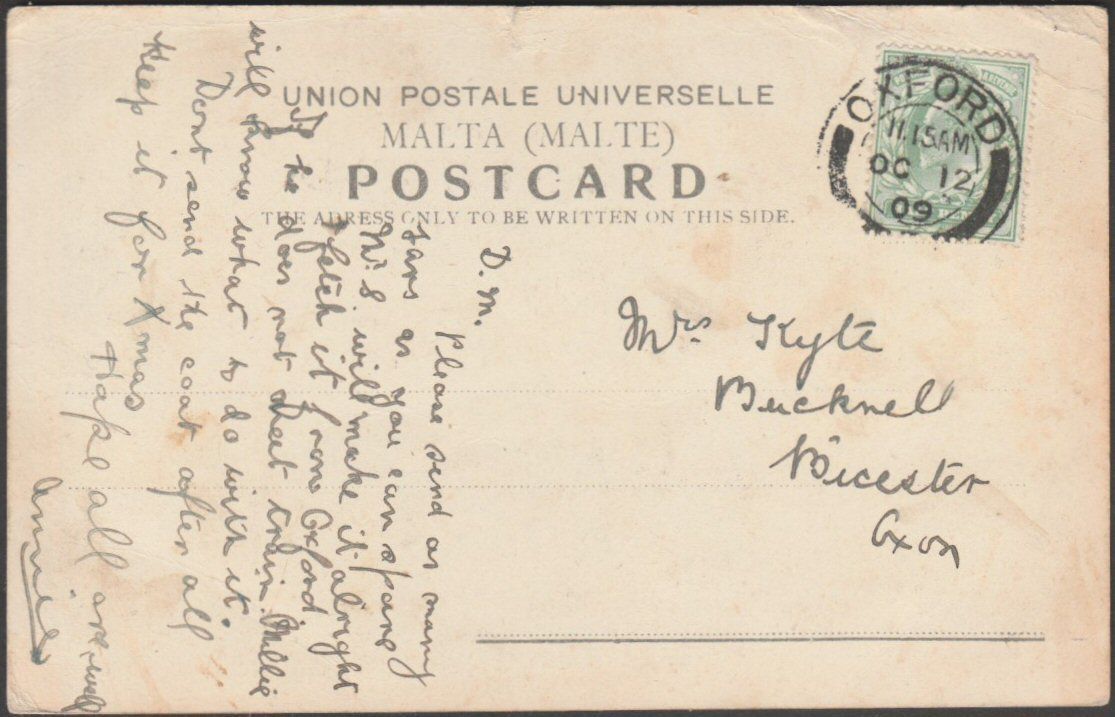 UNION POSTALE UNIVERSELLE
MALTA (MALTE)
POSTCARD
THE ADRESS ONLY TO BE WRITTEN ON THIS SIDE.
OXFORD
11.15AM
OC 12
09
Mrs Kyte
Bucknell
Bicester
Oxon
D. M.
Please send as many
jars as you can spare
Mr S will make it alright
& fetch it from Oxford
If he does not meet train Millie
will know what to do with it.
Dont send the coat after all
Keep it for Xmas
Hope all are well
Annie